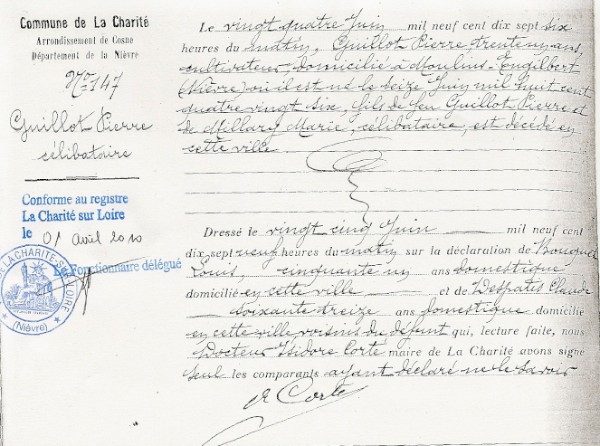 Commune de La Charité
Arrondissement de Cosne
Département de la Nièvre
No 147
Guillot Pierre
célibataire
Conforme au registre
La Charité sur Loire
le 01 Avril 2010
Le Fonctionnaire délégué
DE LA CHARITÉ-SUR-LOIRE
(Nièvre)
Le vingt quatre Juin mil neuf cent dix sept six
heures du matin, Guillot Pierre, trente un ans,
cultivateur, domicilié à Moulins-Engilbert
(Nièvre) où il est né le seize Juin mil huit cent
quatre vingt six, fils de feu Guillot Pierre et
de Millary Marie, célibataire, est décédé en
cette ville
Dressé le vingt cinq Juin mil neuf cent
dix sept neuf heures du matin sur la déclaration de
Louis, cinquante un ans domestique
domicilié en cette ville et de Despatis Claude
soixante treize ans domestique domicilié
en cette ville voisins du défunt qui, lecture faite, nous
Docteur Isidore Corté maire de La Charité avons signé
seul les comparants ayant déclaré ne le savoir
Dr Corté